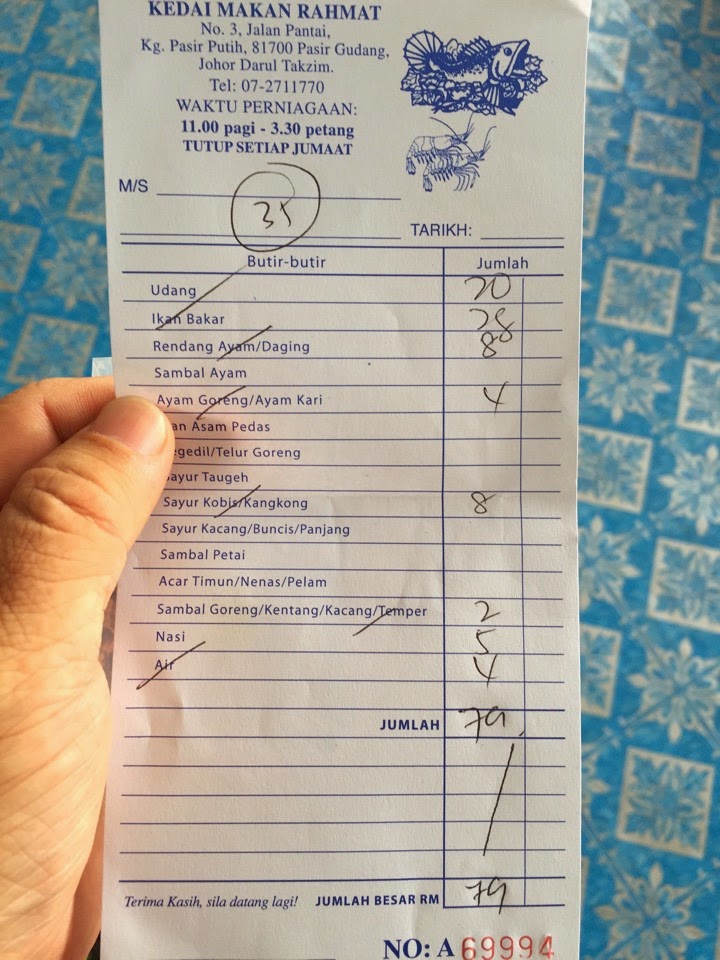 KEDAI MAKAN RAHMAT
No. 3, Jalan Pantai,
Kg. Pasir Putih, 81700 Pasir Gudang,
Johor Darul Takzim.
Tel: 07-2711770
WAKTU PERNIAGAAN:
11.00 pagi - 3.30 petang
TUTUP SETIAP JUMAAT
M/S
35
TARIKH:
Butir-butir Jumlah
Udang 20
Ikan Bakar 28
Rendang Ayam/Daging 8
Sambal Ayam
Ayam Goreng/Ayam Kari 4
an Asam Pedas
egedil/Telur Goreng
ayur Taugeh
Sayur Kobis/Kangkong 8
Sayur Kacang/Buncis/Panjang
Sambal Petai
Acar Timun/Nenas/Pelam
Sambal Goreng/Kentang/Kacang/Temper 2
Nasi 5
Air 4
JUMLAH 79
Terima Kasih, sila datang lagi! JUMLAH BESAR RM 79
NO: A 69994